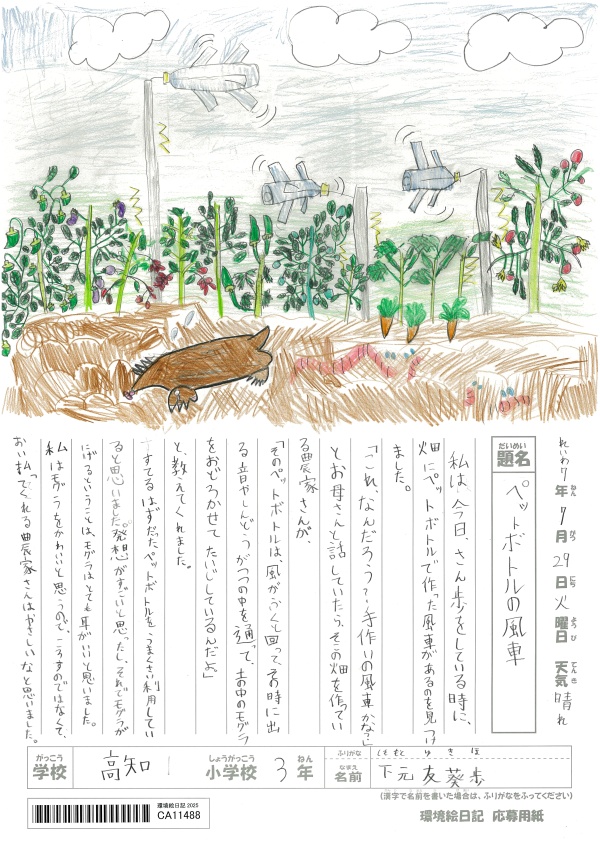 れいわ7年7月29日火曜日 天気 晴れ
ねん がつ にち ようび てんき
だいめい
題名
ペットボトルの風車
私は、今日、さん歩をしている時に、
畑にペットボトルで作った風車があるのを見つけ
ました。
「これ、なんだろう?手作りの風車かな?」
とお母さんと話していたら、その畑を作ってい
る農家さんが、
「そのペットボトルは、風がふくと回って、その時に出
る音やしんどうがつつの中を通って、土の中のモグラ
をおどろかせて、たいじしているんだよ」
と、教えてくれました。
すてるはずだったペットボトルを、うまくさい利用してい
ると思いました。発想がすごいと思ったし、それでモグラが
にげるということは、モグラはとても耳がいいと思いました。
私はモグラをかわいいと思うので、ころすのではなくて、
おいはらってくれる農家さんはやさしいなと思いました。
がっこう しょうがっこう ねん
学校 高知 小学校 3年
ふりがな しももと ゆきほ
なまえ
名前 下元 友葵歩
(漢字で名前を書いた場合は、ふりがなをふってください)
環境絵日記 2025
CA11488
環境絵日記 応募用紙